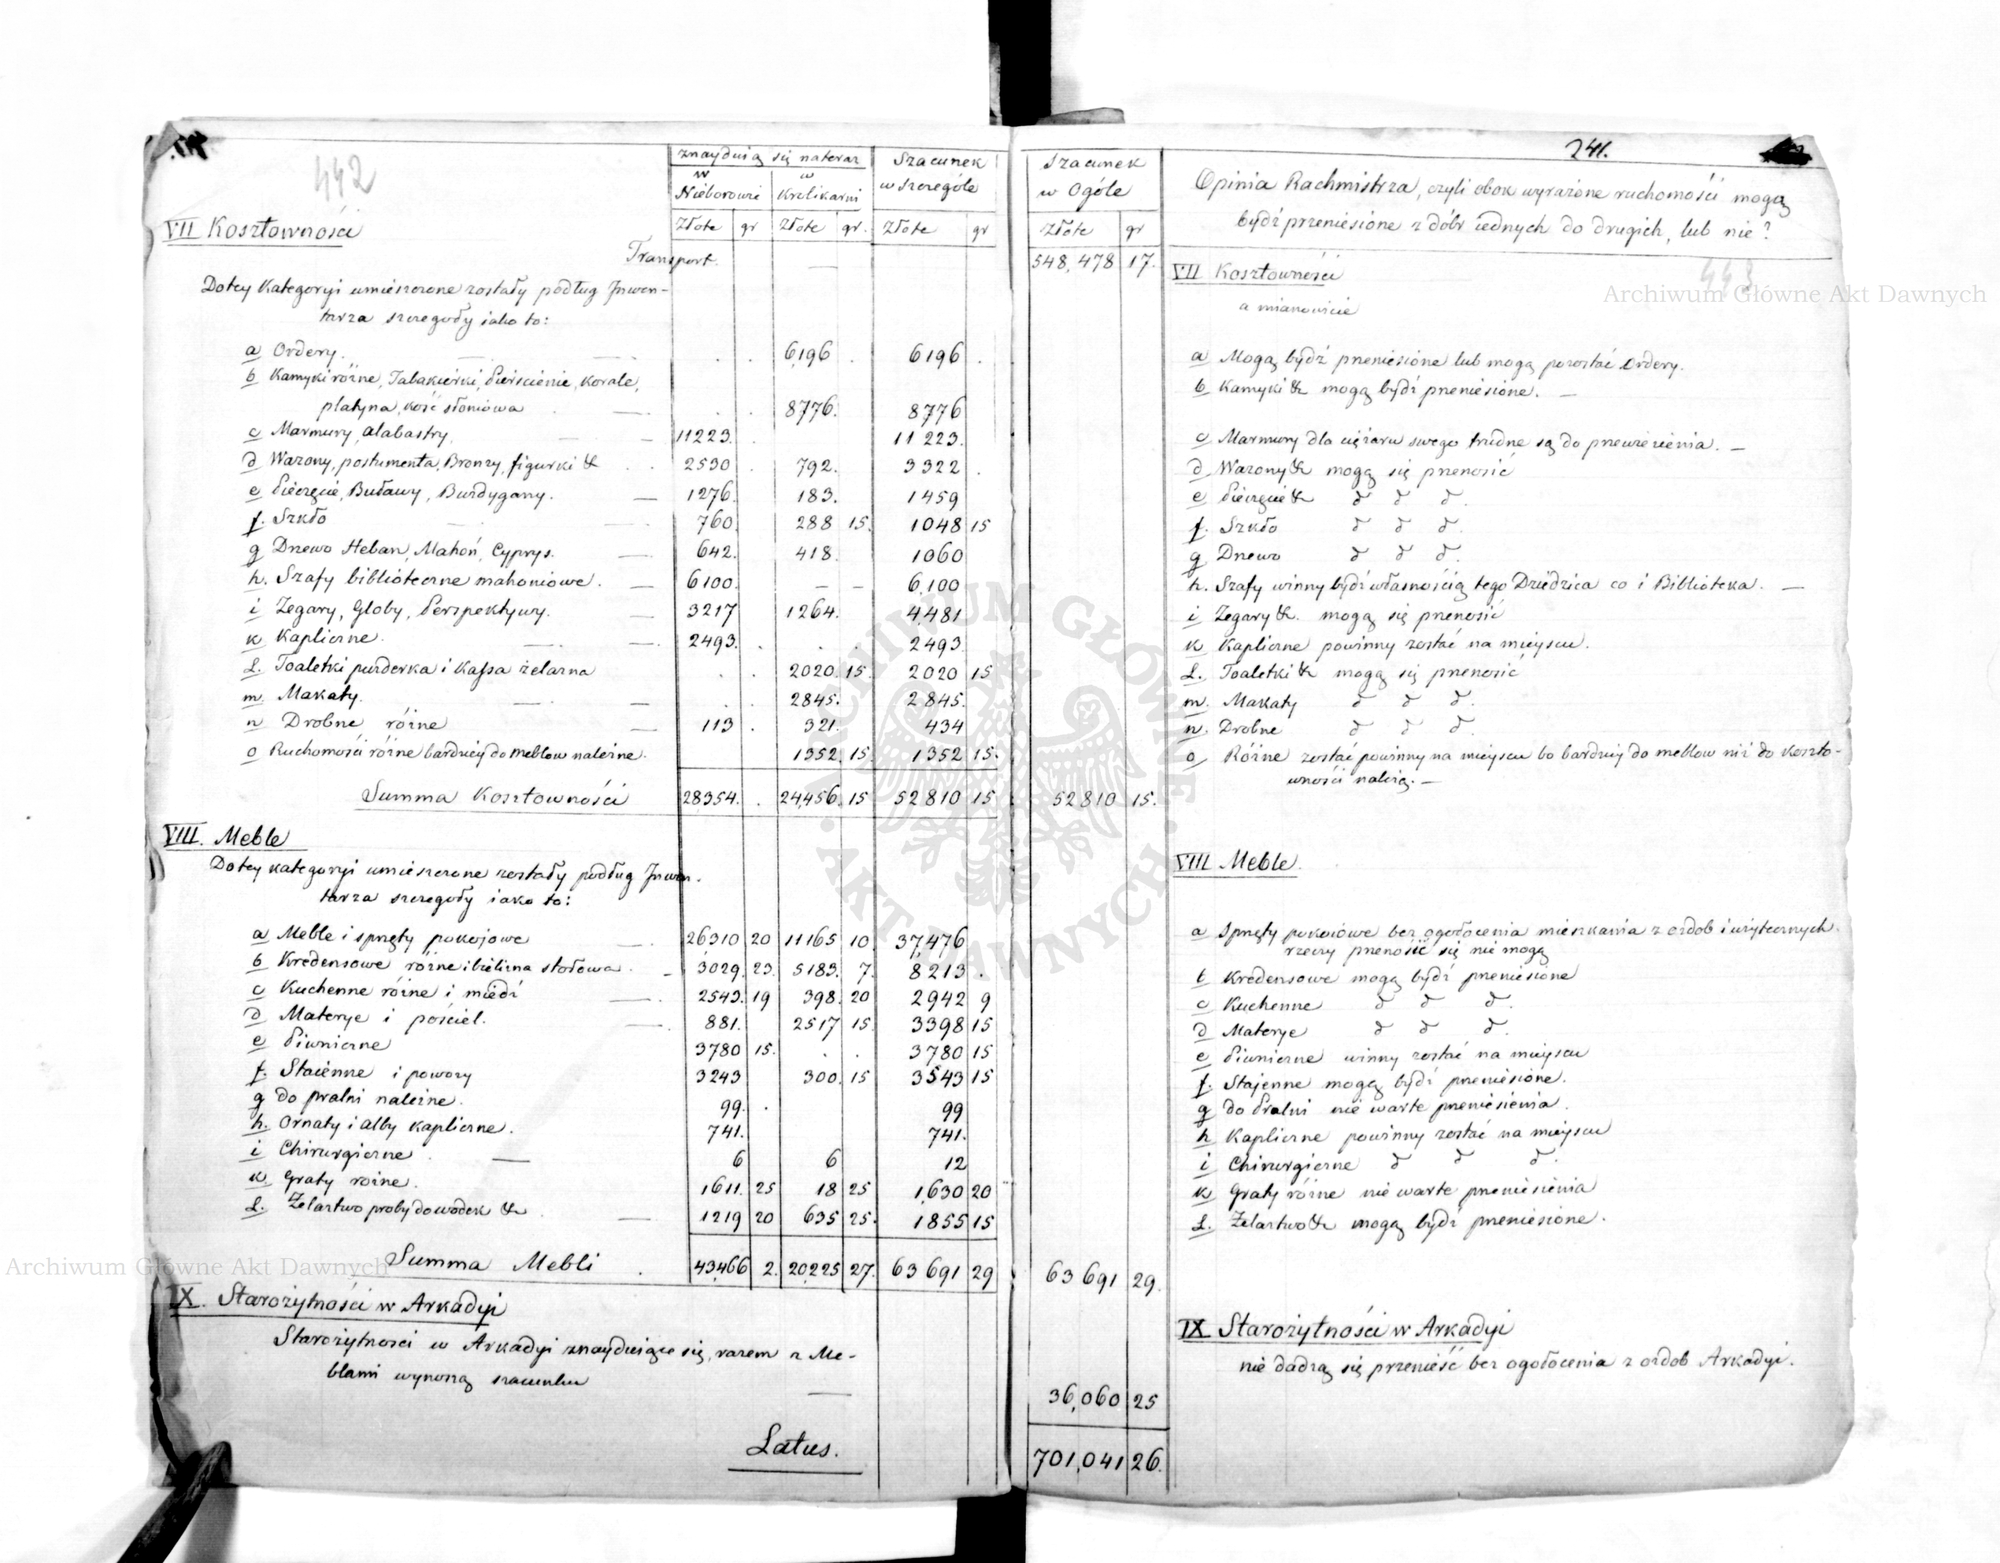 442
znayduią się nateraz
w Nieborowie
w Krolikarni
Szacunek w szczególe
Złote gr Złote gr. Złote gr
VII Kosztowności
Transport. —
Dotey Kategoryi umieszczone zostały podług Jnwen-
tarza szczegoły iako to:
a Ordery. 6,196 . 6196 .
b Kamyki różne, Tabakierki, Pierścienie, Korale,
platyna, kość słoniowa 8776. 8776
c Marmury, alabastry, 11223. 11 223.
d Wazony, postumenta, Bronzy, figurki & 2530 792. 3322 .
e Pieczęcie, Buławy, Buzdygany. 1276. 183. 1459
f. Szkło 760 288 15. 1048 15
g Drzewo Heban, Mahoń, Cyprys. 642. 418 1060
h. Szafy biblioteczne mahoniowe. 6100. — 6,100
i Zegary, Globy, Perspektywy. 3217 1264. 4,481
k Kapliczne. 2493. 2493
L. Toaletki purderka i Kassa żelazna 2020. 15. 2020 15
m Makaty. 2845. 2845.
n Drobne różne 113 . 321. 434
o Ruchomości różne bardziey do Meblow należne. 1352 15. 1352 15.
Summa Kosztowności 28354. . 24,456 15 52810 15
VIII. Meble
Dotey kategoryi umieszczone zostały podług Jnwen-
tarza szczegoły iako to:
a Meble i sprzęty pokojowe 26310 20 11165 10 37,476
b Kredensowe różne i bielizna stołowa. 3029. 23. 5183. 7. 8213 .
c Kuchenne różne i miedź 2543. 19 398. 20 2942 9
d Materye i pościel. 881. 2517 15. 3398 15
e Piwniczne 3780 15. . . 3780 15
f. Staienne i powozy 3243 300. 15 3543 15
g do pralni należne. 99. 99
h. Ornaty i alby kapliczne. 741. 741.
i Chirurgiczne. 6 6 12
k Graty rożne. 1611. 25 18 25 1,630 20
L. Żelaztwo proby do wodek & 1219 20 635 25. 1855 15
Summa Mebli 43,466 2. 20,225 27. 63 691 29
IX. Starożytności w Arkadyi
Starożytności w Arkadyi znayduiące się, razem z Me-
blami wynoszą szacunku —
Latus.
241.
443
Szacunek w Ogóle
Złote gr
Opinia Rachmistrza, czyli obok wyrażone ruchomości mogą
bydź przeniesione z dóbr iednych do drugich, lub nie?
548,478 17. VII Kosztowności
a mianowicie
a Mogą bydź przeniesione lub mogą pozostać Ordery.
b Kamyki & mogą bydź przeniesione. —
c Marmury dla ciężaru swego trudne są do przewiezienia. —
d Wazony & mogą się przenosić
e Pieczęcie & d d d.
f. Szkło d d d.
g Drzewo d d d.
h. Szafy winny bydź własnością tego Dziedzica co i Biblioteka. —
i Zegary &. mogą się przenosić
k Kapliczne powinny zostać na mieyscu.
L. Toaletki & mogą się przenosić
m. Makaty d d d.
n. Drobne d d d.
o Różne zostać powinny na mieyscu bo bardziey do meblow niż do koszto-
wności należą. —
52810 15.
VIII Meble.
a Sprzęty pokoiowe bez ogołocenia mieszkania z ozdob i użytecznych
rzeczy przenosić się nie mogą
b Kredensowe mogą bydź przeniesione
c Kuchenne d d d.
d Materye d d d.
e Piwniczne winny zostać na mieyscu
f. Stajenne mogą bydź przeniesione.
g do Pralni nie warte przeniesienia.
h Kapliczne powinny zostać na mieyscu
i Chirurgiczne d d d.
k Graty różne nie warte przeniesienia
L. Żelaztwo & mogą bydź przeniesione.
63 691 29.
IX Starożytności w Arkadyi
nie dadzą się przenieść bez ogołocenia z ozdob Arkadyi.
36,060 25
701,041 26.
Archiwum Główne Akt Dawnych
Archiwum Główne Akt Dawnych
ARCHIWUM GŁÓWNE AKT DAWNYCH